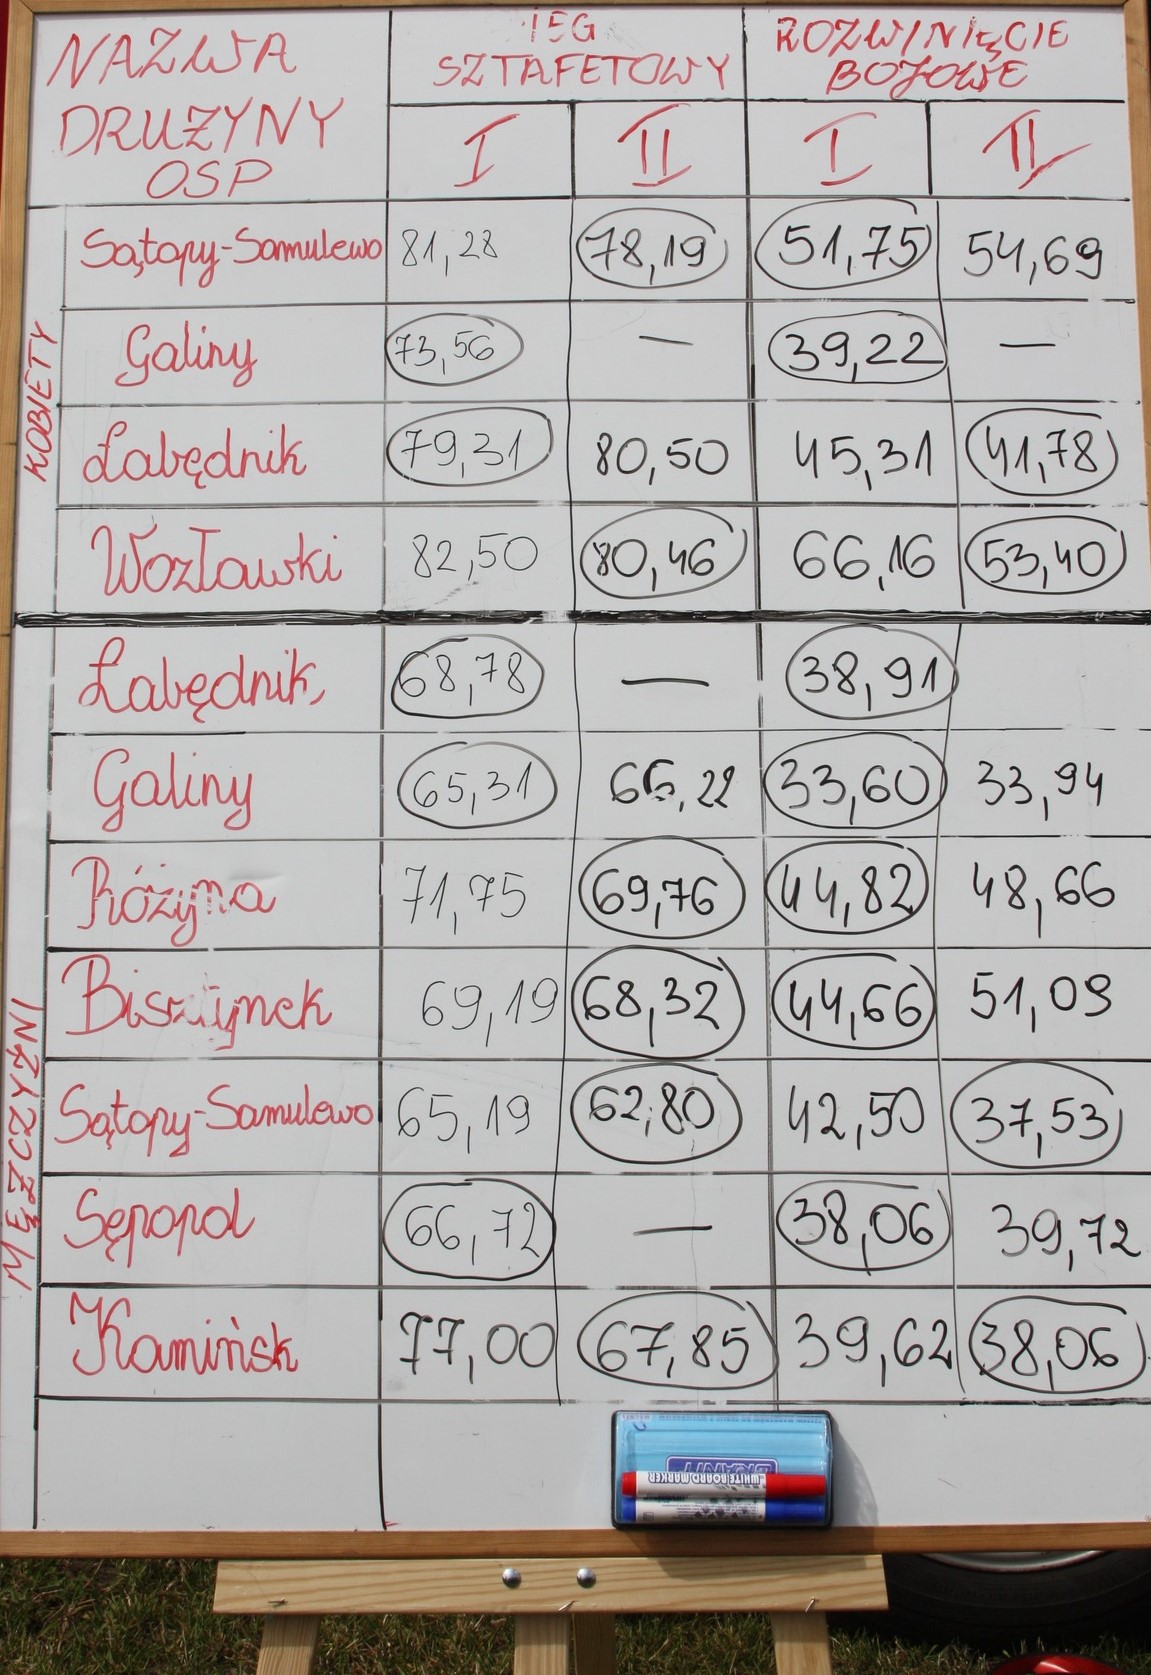 NAZWA
DRUŻYNY
OSP
IEG
SZTAFETOWY
ROZWINIĘCIE
BOJOWE
I II I II
KOBIETY
Sątopy-Samulewo 81,28 78,19 51,75 54,69
Galiny 73,56 — 39,22 —
Łabędnik 79,31 80,50 45,31 41,78
Wozławki 82,50 80,46 66,16 53,40
MĘŻCZYŹNI
Łabędnik, 68,78 — 38,91
Galiny 65,31 66,22 33,60 33,94
Różyna 71,75 69,76 44,82 48,66
Bisztynek 69,19 68,32 44,66 51,09
Sątopy-Samulewo 65,19 62,80 42,50 37,53
Sępopol 66,72 — 38,06 39,72
Kamińsk 77,00 67,85 39,62 38,06
WHITEBOARD MARKER